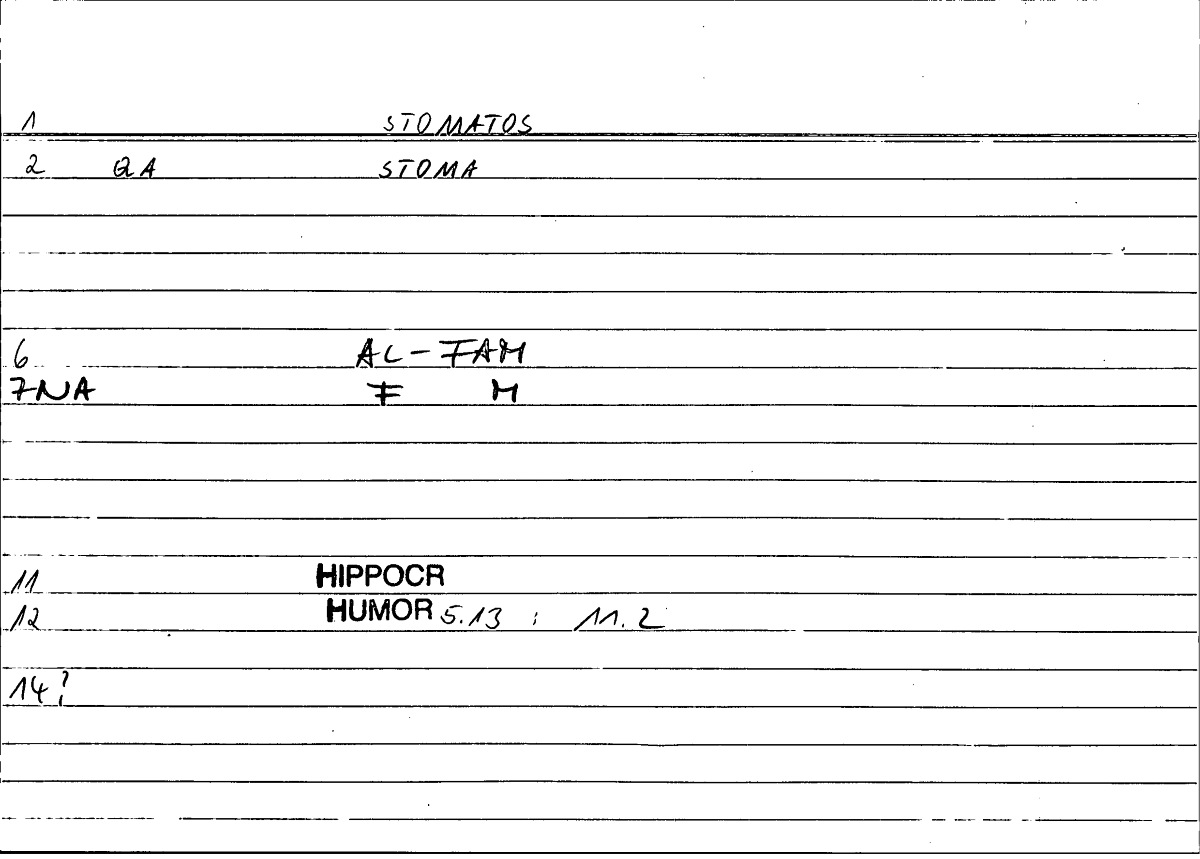 1 STOMATOS
2 QA STOMA
6 AL-FAM
7NA F M
11 HIPPOCR
12 HUMOR 5.13 : 11.2
14?